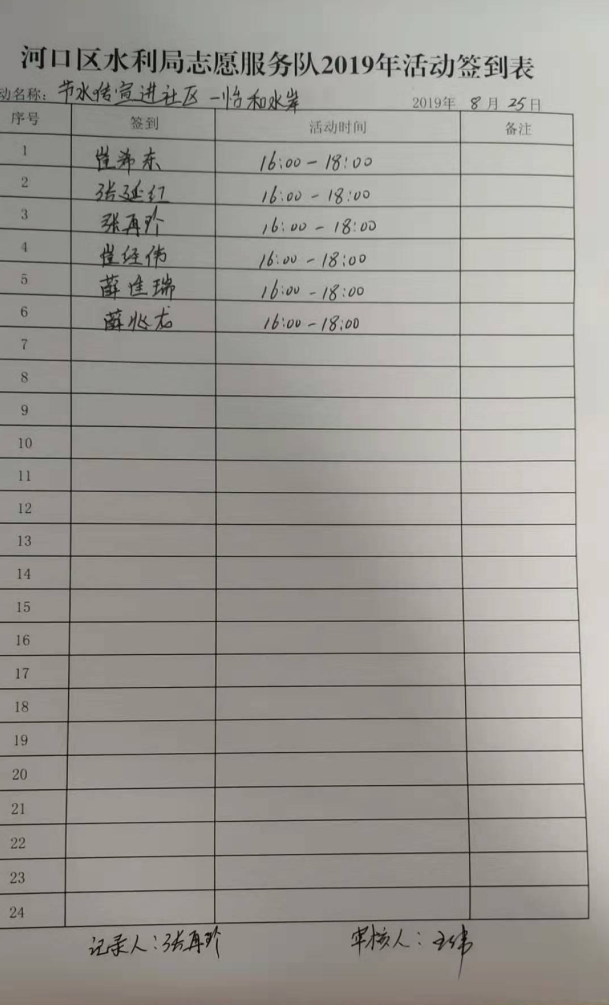 河口区水利局志愿服务队2019年活动签到表
动名称：节水宣进社区－怡和水岸 2019年 8月 25日
序号 签到 活动时间 备注
1 崔希东 16:00－18:00
2 张延红 16:00－18:00
3 张再珍 16:00－18:00
4 崔经伟 16:00－18:00
5 薛佳瑞 16:00－18:00
6 薛兆龙 16:00－18:00
7
8
9
10
11
12
13
14
15
16
17
18
19
20
21
22
23
24
记录人：张再珍 审核人：王伟